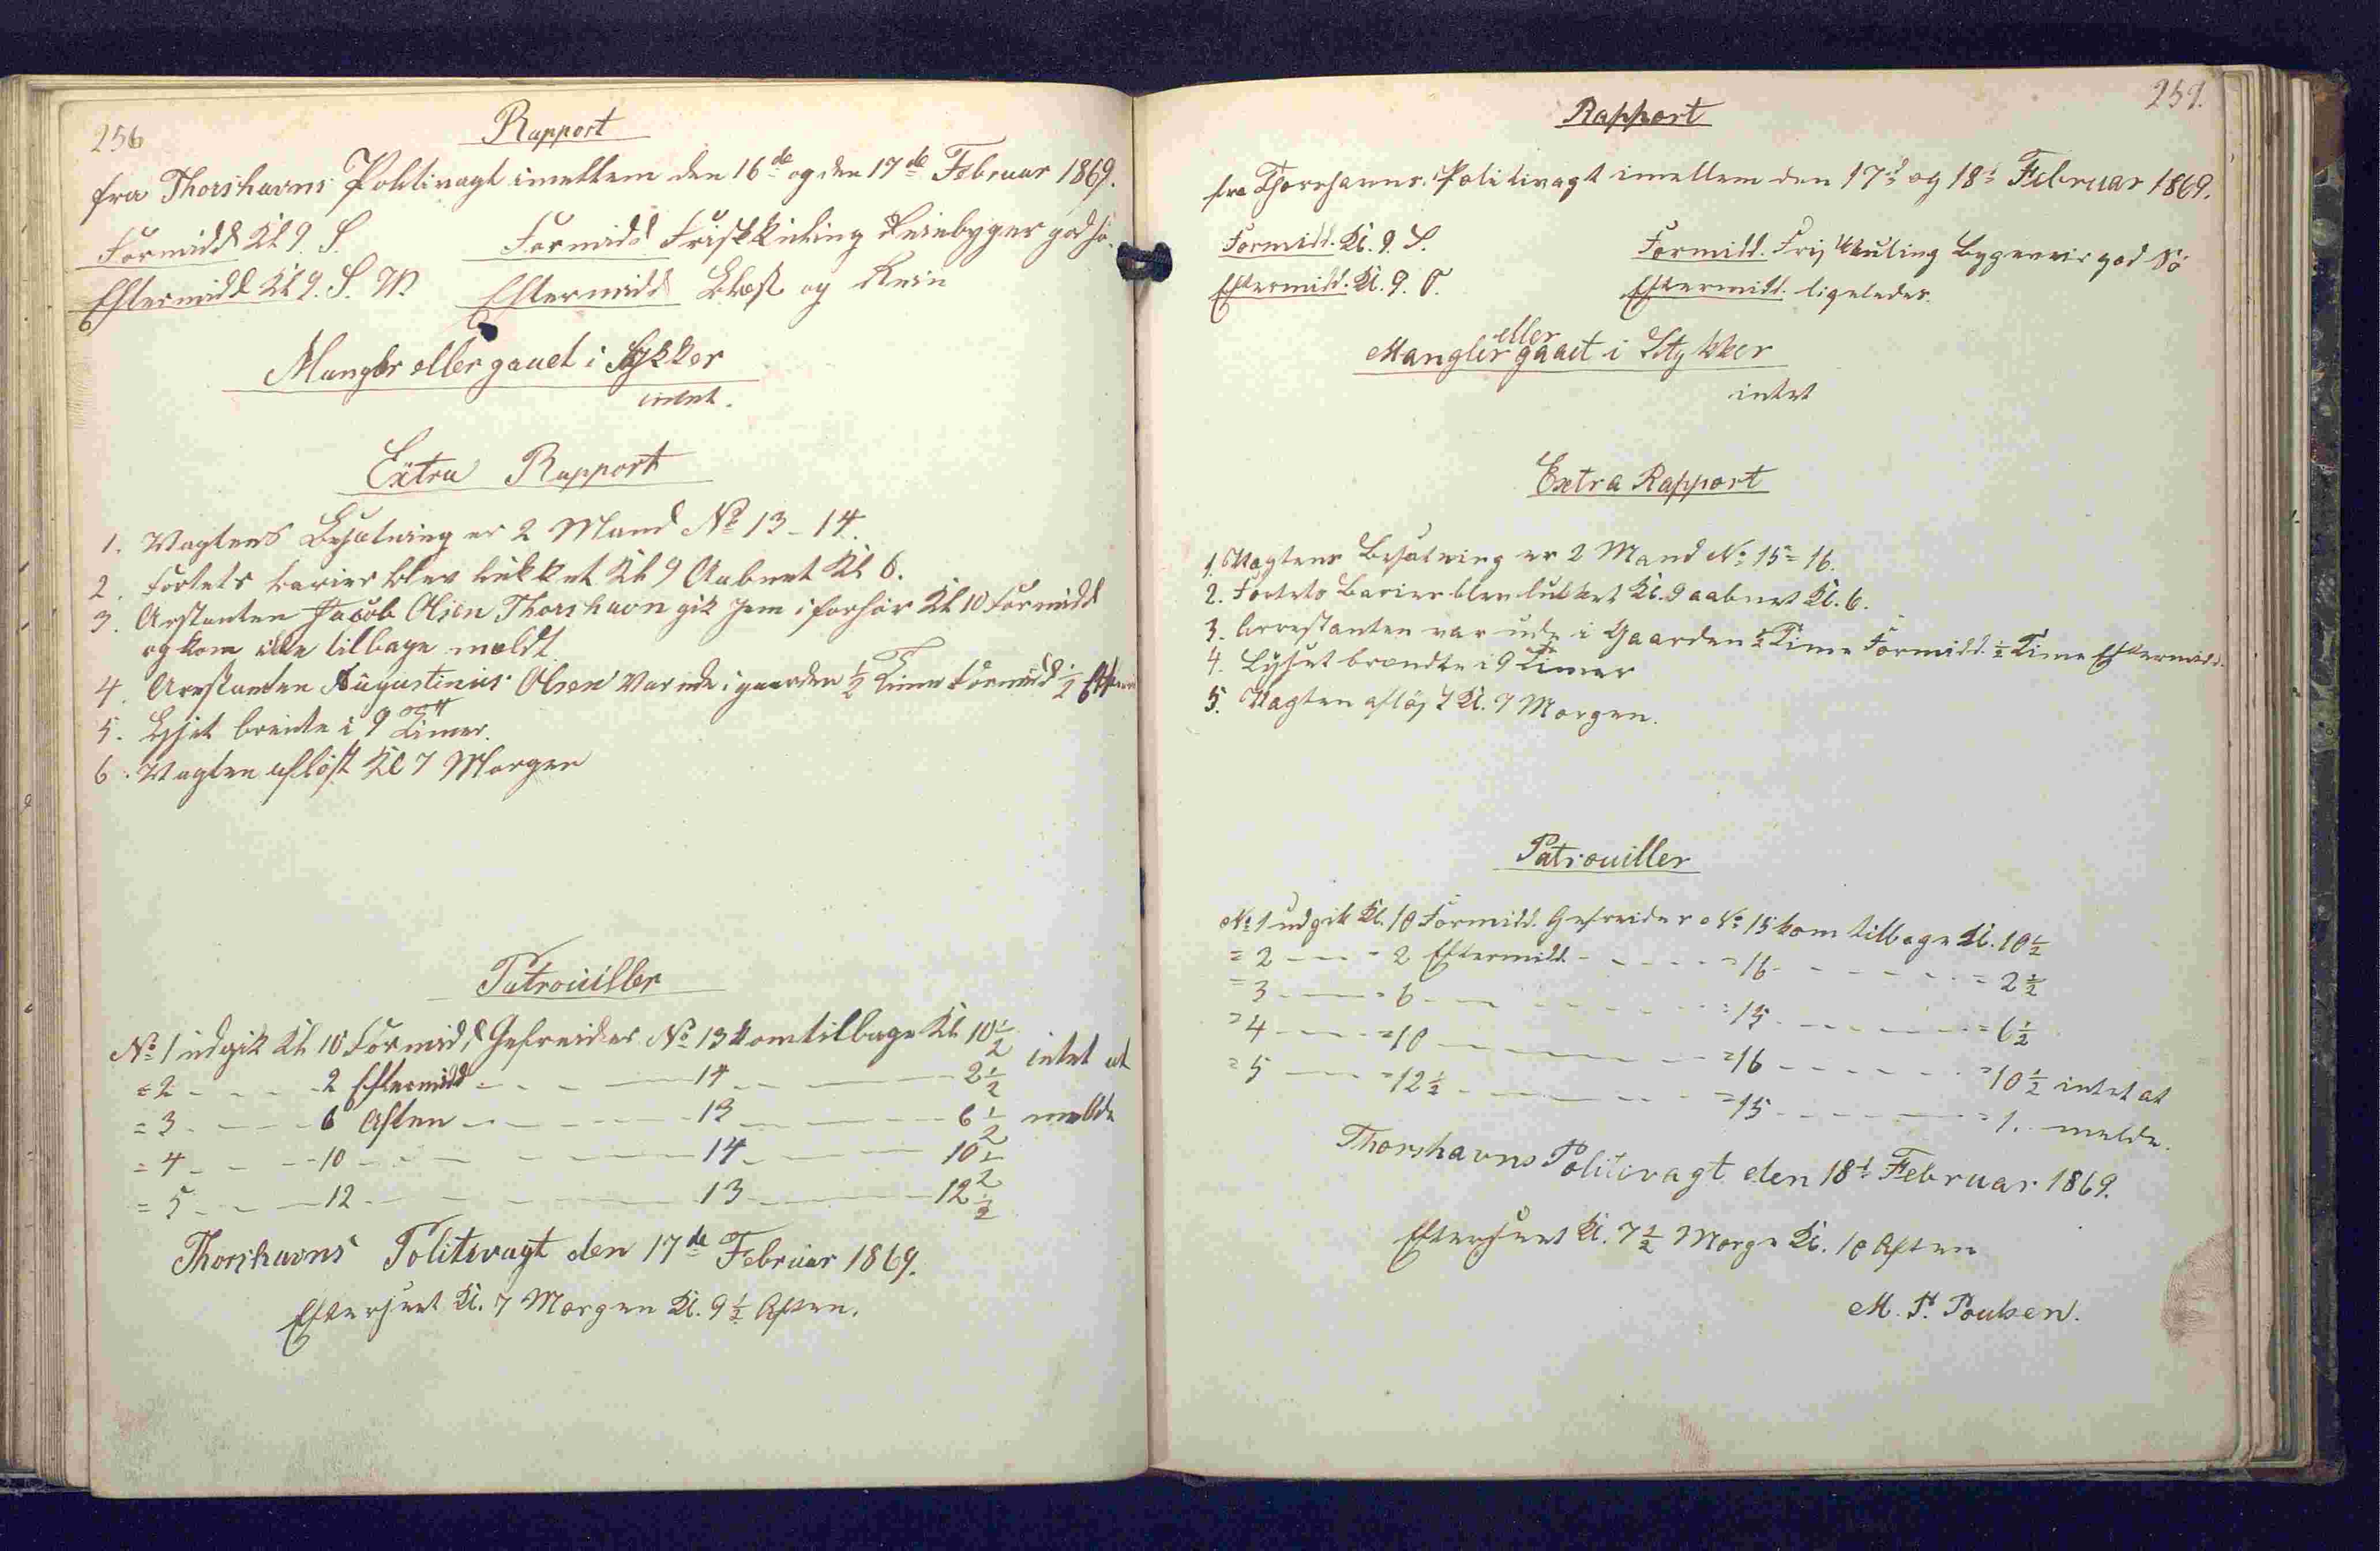 256
Rapport
fra Thorshavns Politivagt imellem den 16de og den 17de Februar 1869.
Formidd Kl 9. S.
Formidd Friskkuling Reinbyger god Sö.
Eftermidd Kl 9. S. W.
Eftermidd Blæst og Rein
Mangler eller gaaet i Stykker
intet.
Extra Rapport
1. Vagtens Besætning er 2 Mand No 13 - 14.
2. Fortets barier blev lukket Kl 9 Aabnet Kl 6.
3. Arestanten Jacob Olsen Thorshavn gik hem i forhör Kl 10 Formidd
og kom ikke tilbage meldt
4. Arestanten Augustinus Olsen Var ude i gaarden 1/2 Time Formidd 1/2 Efterm
5. Lyset brente i 9 Timer.
6. Vagten aflöst Kl 7 Morgen
Patrouiller
No 1 udgik Kl 10 Formidd Gefreider No 13 kom tilbage Kl 10 1/2
= 2 - - - - 2 Eftermidd - - - 14 - - - 2 1/2 intet at
= 3 - - - - 6 Aften - - - 13 - - - 6 1/2 melde
= 4 - - - - 10 - - - 14 - - - 10 1/2
= 5 - - - - 12 - - - 13 - - - 12 1/2
Thorshavns Politivagt den 17de Februar 1869.
Efterseet Kl. 7 Morgen Kl. 9 1/2 Aften.
259.
Rapport
fra Thorshavns Politivagt imellem den 17d og 18d Februar 1869.
Formidd. Kl. 9. S.
Formidd. Frisk Kuling Bygeveir god Sö
Eftermidd. Kl. 9. O.
Eftermidd. ligeledes.
eller
Mangler gaaet i Stykker
intet
Extra Rapport
1. Vagtens Besætning er 2 Mand No 15 = 16.
2. Fortets Barier blev lukket Kl. 9 aabnet Kl. 6.
3. Arrestanten var ude i Gaarden 1/2 Time Formidd. 1/2 Time Eftermidd.
4. Lyset brændte i 9 Timer
5. Vagten aflöst Kl. 7 Morgen.
Patrouiller
No 1 udgik Kl. 10 Formidd. Gefreider No 15 kom tilbage Kl. 10 1/2
= 2 - - - = 2 Eftermidd. - - - = 16 - - - = 2 1/2
= 3 - - - = 6 - - - = 15 - - - = 6 1/2
= 4 - - - = 10 - - - = 16 - - - = 10 1/2 intet at
= 5 - - - = 12 1/2 - - - = 15 - - - = 1. melde.
Thorshavns Politivagt den 18d Februar 1869.
Efterseet Kl. 7 1/2 Morge Kl. 10 Aften
M. P. Poulsen.